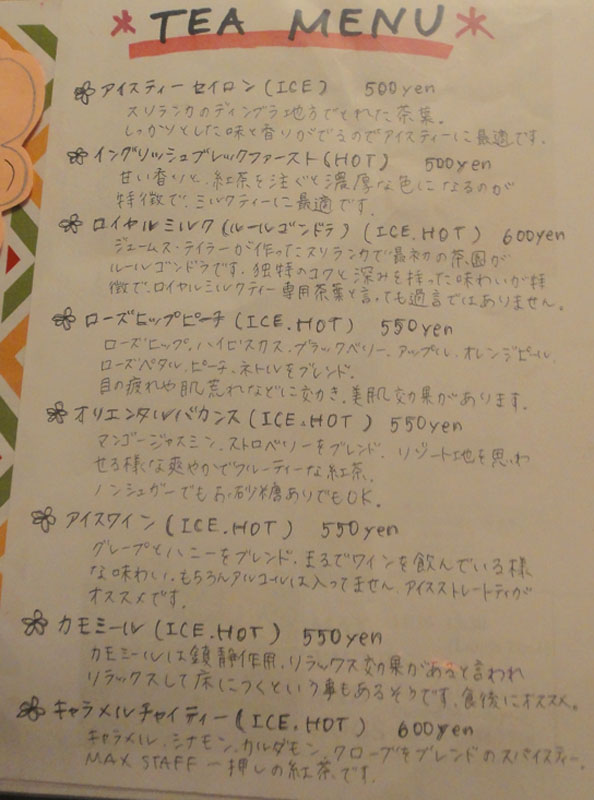 *TEA MENU*
アイスティーセイロン(ICE) 500yen
スリランカのディンブラ地方でとれた茶葉。
しっかりとした味と香りがでるのでアイスティーに最適です。
イングリッシュブレックファースト(HOT) 500yen
甘い香りと、紅茶を注ぐと濃厚な色になるのが
特徴で、ミルクティーに最適です。
ロイヤルミルク(ルールゴンドラ)(ICE.HOT) 600yen
ジェームス・テイラーが作ったスリランカで最初の茶園が
ルールゴンドラです。独特のコクと深みを持った味わいが特
徴で、ロイヤルミルクティー専用茶葉と言っても過言ではありません。
ローズヒップピーチ(ICE.HOT) 550yen
ローズヒップ、ハイビスカス、ブラックベリー、アップル、オレンジピール、
ローズペタル、ピーチ、ネトルをブレンド。
目の疲れや肌荒れなどに効き、美肌効果があります。
オリエンタルバカンス(ICE.HOT) 550yen
マンゴー、ジャスミン、ストロベリーをブレンド。リゾート地を思わ
せる様な爽やかでフルーティーな紅茶、
ノンシュガーでもお砂糖ありでもOK。
アイスワイン(ICE.HOT) 550yen
グレープとハニーをブレンド。まるでワインを飲んでいる様
な味わい。もちろんアルコールは入ってません。アイスストレートティが
オススメです。
カモミール(ICE.HOT) 550yen
カモミールは鎮静作用、リラックス効果があると言われ
リラックスして床につくという事もあるそうです。食後にオススメ。
キャラメルチャイティー(ICE.HOT) 600yen
キャラメル、シナモン、カルダモン、クローブをブレンドのスパイスティー。
MAX STAFF一押しの紅茶です。